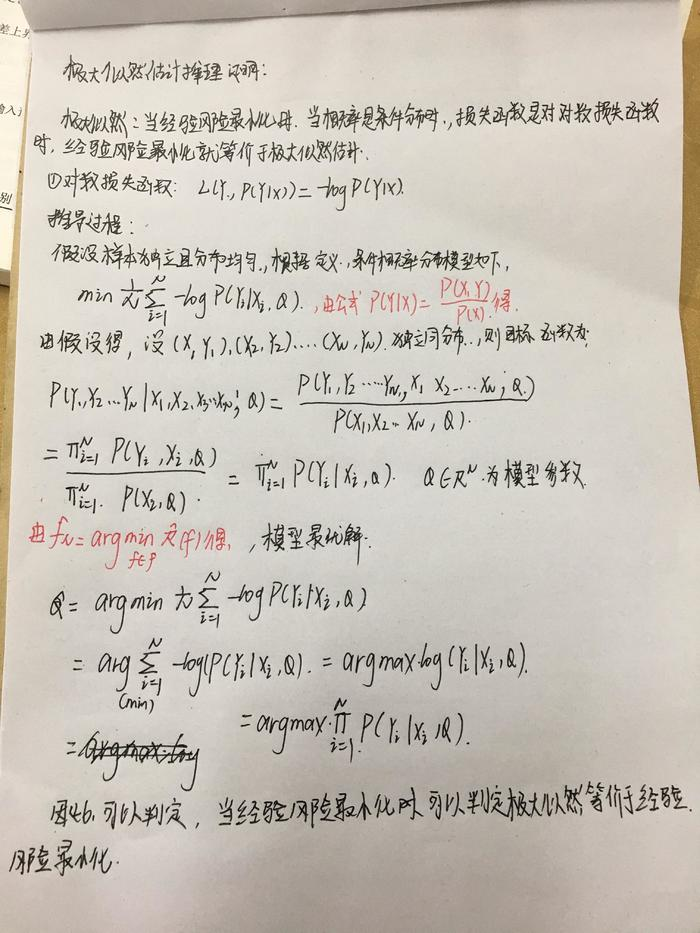 极大似然估计推理证明:
极大似然:当经验风险最小化时.当概率是条件分布时.,损失函数是对对数损失函数
时,经验风险最小化就等价于极大似然估计.
①对数损失函数: L(Y., P(Y|X)) = -log P(Y|X).
推导过程:
假设样本独立且分布均匀.,根据定义.,条件概率分布模型如下,
min 1/N ∑_{i=1}^{N} -log P(Y_i|X_i, Q). ,由公式 P(Y|X) = P(X,Y)/P(X) .得.
由假设得, 设 (X, Y_1), (X_2, Y_2).... (X_N, Y_N). 独立同分布..,则目标函数为:
P(Y_1, Y_2 ... Y_N | X_1, X_2, X_3...X_N; Q) = P(Y_1, Y_2 ..... Y_N, X_1 X_2.... X_N; Q.)/P(X_1, X_2.. X_N, Q).
= ∏_{i=1}^{N} P(Y_i, X_i, Q)/∏_{i=1}^{N}. P(X_2, Q). = ∏_{i=1}^{N} P(Y_i|X_i, Q). Q∈R^N.为模型参数.
由 f_N = arg min_{f∈f} R(f) 得, ,模型最优解:
Q = arg min 1/N ∑_{i=1}^{N} -log P(Y_i|X_i, Q)
= arg ∑_{i=1}^{N} -log(P(Y_i|X_i, Q). = arg max.log (Y_i|X_i, Q).
(min)
= arg max. ∏_{i=1}^{N} P(Y_i|X_i, Q).
=
因此.可以判定, 当经验风险最小化时可以判定极大似然等价于经验.
风险最小化.